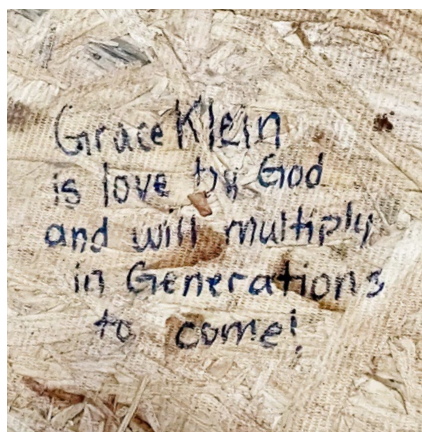 Grace Klein
is love by God
and will multiply
in Generations
to come!